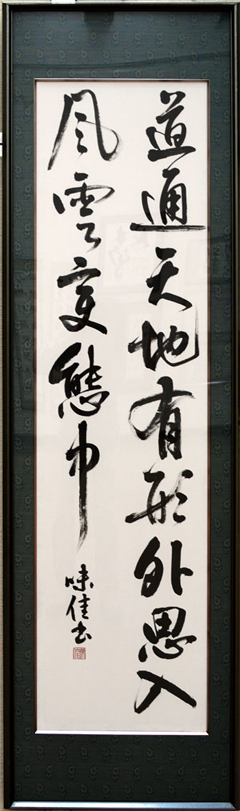 道通天地有形外思入
風雲変態中
味佳書